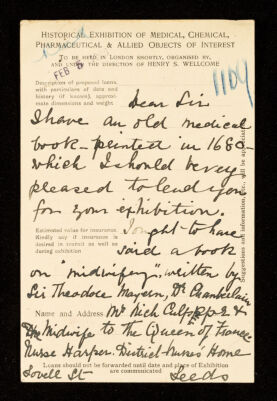 HISTORICAL EXHIBITION OF MEDICAL, CHEMICAL,
PHARMACEUTICAL & ALLIED OBJECTS OF INTEREST
TO BE HELD IN LONDON SHORTLY, ORGANISED BY,
AND UNDER THE DIRECTION OF HENRY S. WELLCOME
FEB 5
1104
Description of proposed loans,
with particulars of date and
history (if known), approxi-
mate dimensions and weight
Dear Sir
I have an old medical
book – printed in 1680 –
which I should be very
pleased to lend you
for your exhibition.
Estimated value for insurance.
Kindly say if insurance is
desired in transit as well as
during exhibition
I ought to have
said a book
on "midwifery", written by
Sir Theodore Mayern, Dr Chamberlain
Name and Address
Mr Nich Culpeper &
the Midwife to the Queen of France
Nurse Harper. District Nurses Home
Loans should not be forwarded until date and place of Exhibition
are communicated
Lovell St
Leeds
Suggestions and information, etc., will be appreciated